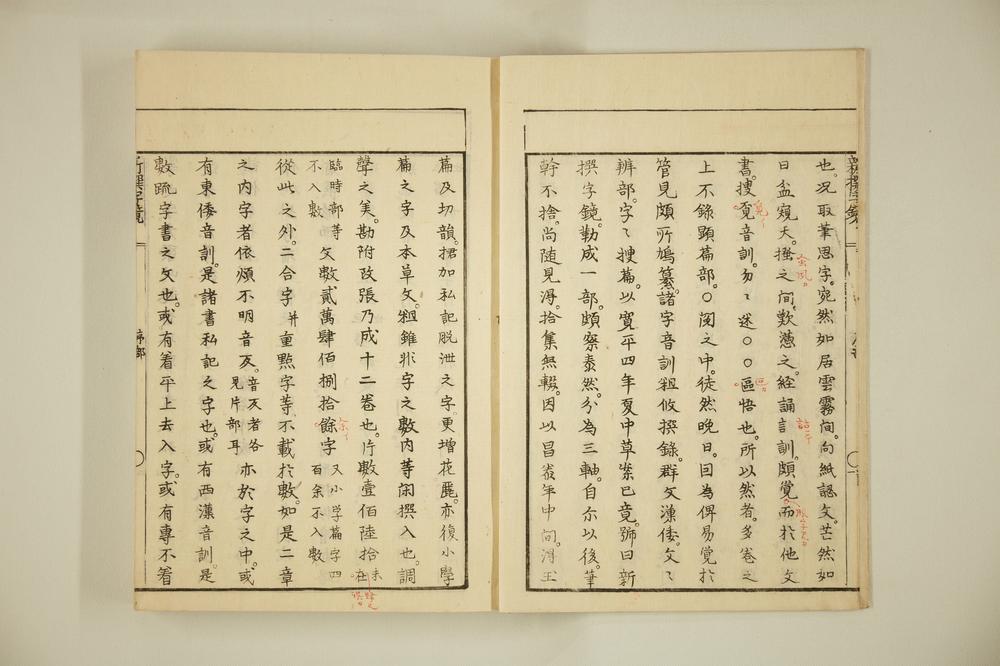 也。况取筆思字。宛然如居雲霧間。向紙認文。芒然如
日盆窺天。搔之間。歎懣之。経誦言訓。頗覺而於他文
書。搜覓音訓。勿々迷〇〇區悟也。所以然者。多卷之
上不錄顯篇部。〇閲之中。徒然晚日。因為俾易覺於
管見頗所鳩纂。諸字音訓粗攸撰錄。群文漢倭。文々
辨部。字々搜篇。以寛平四年夏中草案已竟。號曰新
撰字鏡。勒成一部。頗察泰然。分為三軸。自尒以後。筆
幹不捨。尚随見淂。拾集無輟。因以昌泰年中間。淂玉
篇及切韻。捃加私記脱泄之字。更增花麗。亦復小學
篇之字及本草文。粗雖非字之數內等閑撰入也。調
聲之美。勘附改張乃成十二卷也。片數壹佰陸拾
臨時部等
不入數
文數貳萬肆佰捌拾餘字
又小学篇字四
百余不入數
從此之外。二合字并重點字等。不載於數。如是二章
之內字者依煩不明音反。音反者各
見片部耳
亦於字之中。或
有東倭音訓。是諸書私記之字也。或有西漢音訓。是
數疏字書之文也。或有着平上去入字。或有專不着
新撰字鏡
序